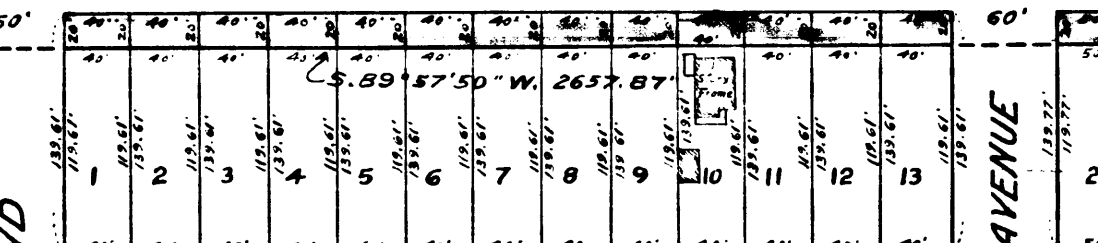 50' 40' 40' 40' 40' 40' 40' 40' 40' 40' 40' 40' 40' 40' 60'
20 20 20 20 20 20 20 20 20
40' 40' 40' 40' 40' 40' 40' 40' 40' 40' 40' 40' 50
S.89°57'50"W. 2657.87'
Story
Frame
139.61' 119.61' 119.61' 139.61' 119.61' 139.61' 119.61' 139.61' 119.61' 139.61' 119.61' 139.61' 119.61' 139.61' 119.61' 139.61' 119.61' 139.61' 119.61' 139.61' 119.61' 139.61' 119.61' 139.61' 119.61' 139.61' 119.61' 139.61' 139.77' 119.77'
1 2 3 4 5 6 7 8 9 10 11 12 13 2
AVENUE